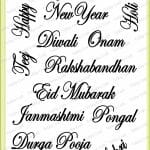 Happy
New Year
Holi
Diwali Onam
Teej
Rakshabandhan
Eid Mubarak
Janmashtmi Pongal
Durga Pooja